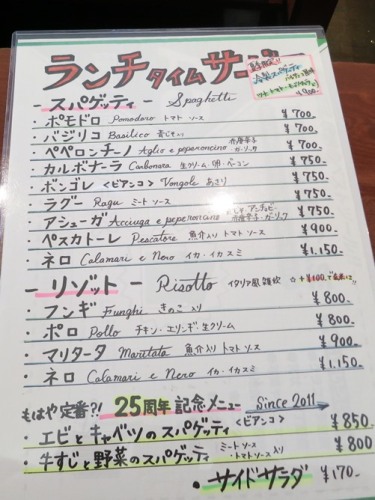 ランチタイムサービ
夏季限り
冷製スパゲッティ
¥900
- スパゲッティ - Spaghetti
・ポモドロ Pomodoro トマトソース ¥700
・バジリコ Basilico 青じそ入り ¥700
・ペペロンチーノ Aglio e peperoncino 赤唐辛子 ガーリック ¥700
・カルボナーラ Carbonara 生クリーム・卵・ベーコン ¥750-
・ボンゴレ <ビアンコ> Vongole あさり ¥750-
・ラグー Ragu ミートソース ¥750-
・アシューガ Acciuga e peperoncino アンチョビ・赤唐辛子 ガーリック ¥750
・ペスカトーレ Pescatore 魚介入りトマトソース ¥900
・ネロ Calamari e Nero イカ・イカスミ ¥1.150-
- リゾット - Risotto イタリア風雑炊 ☆+¥100で
・フンギ Funghi きのこ入り ¥800-
・ポロ Pollo チキン・エリンギ・生クリーム ¥800-
・マリタータ Maritata 魚介入りトマトソース ¥900
・ネロ Calamari e Nero イカ・イカスミ ¥1.150
もはや定番?! 25周年記念メニュー Since 2011
・エビとキャベツのスパゲッティ <ビアンコ> ¥850-
・牛すじと野菜のスパゲッティ ミートソース・トマトソース入り ¥800
・サイドサラダ ¥170-